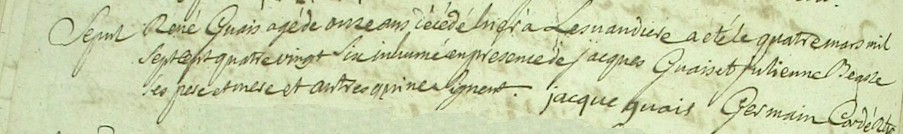 Sepult René Guais agé de onze ans décédé hier a Lesnaudiére a eté le quatre mars mil
sept cent quatre vingt six inhumé en presence de jacques Guais et julienne
ses pere et mere et autres qui ne signent jacque guais Germain